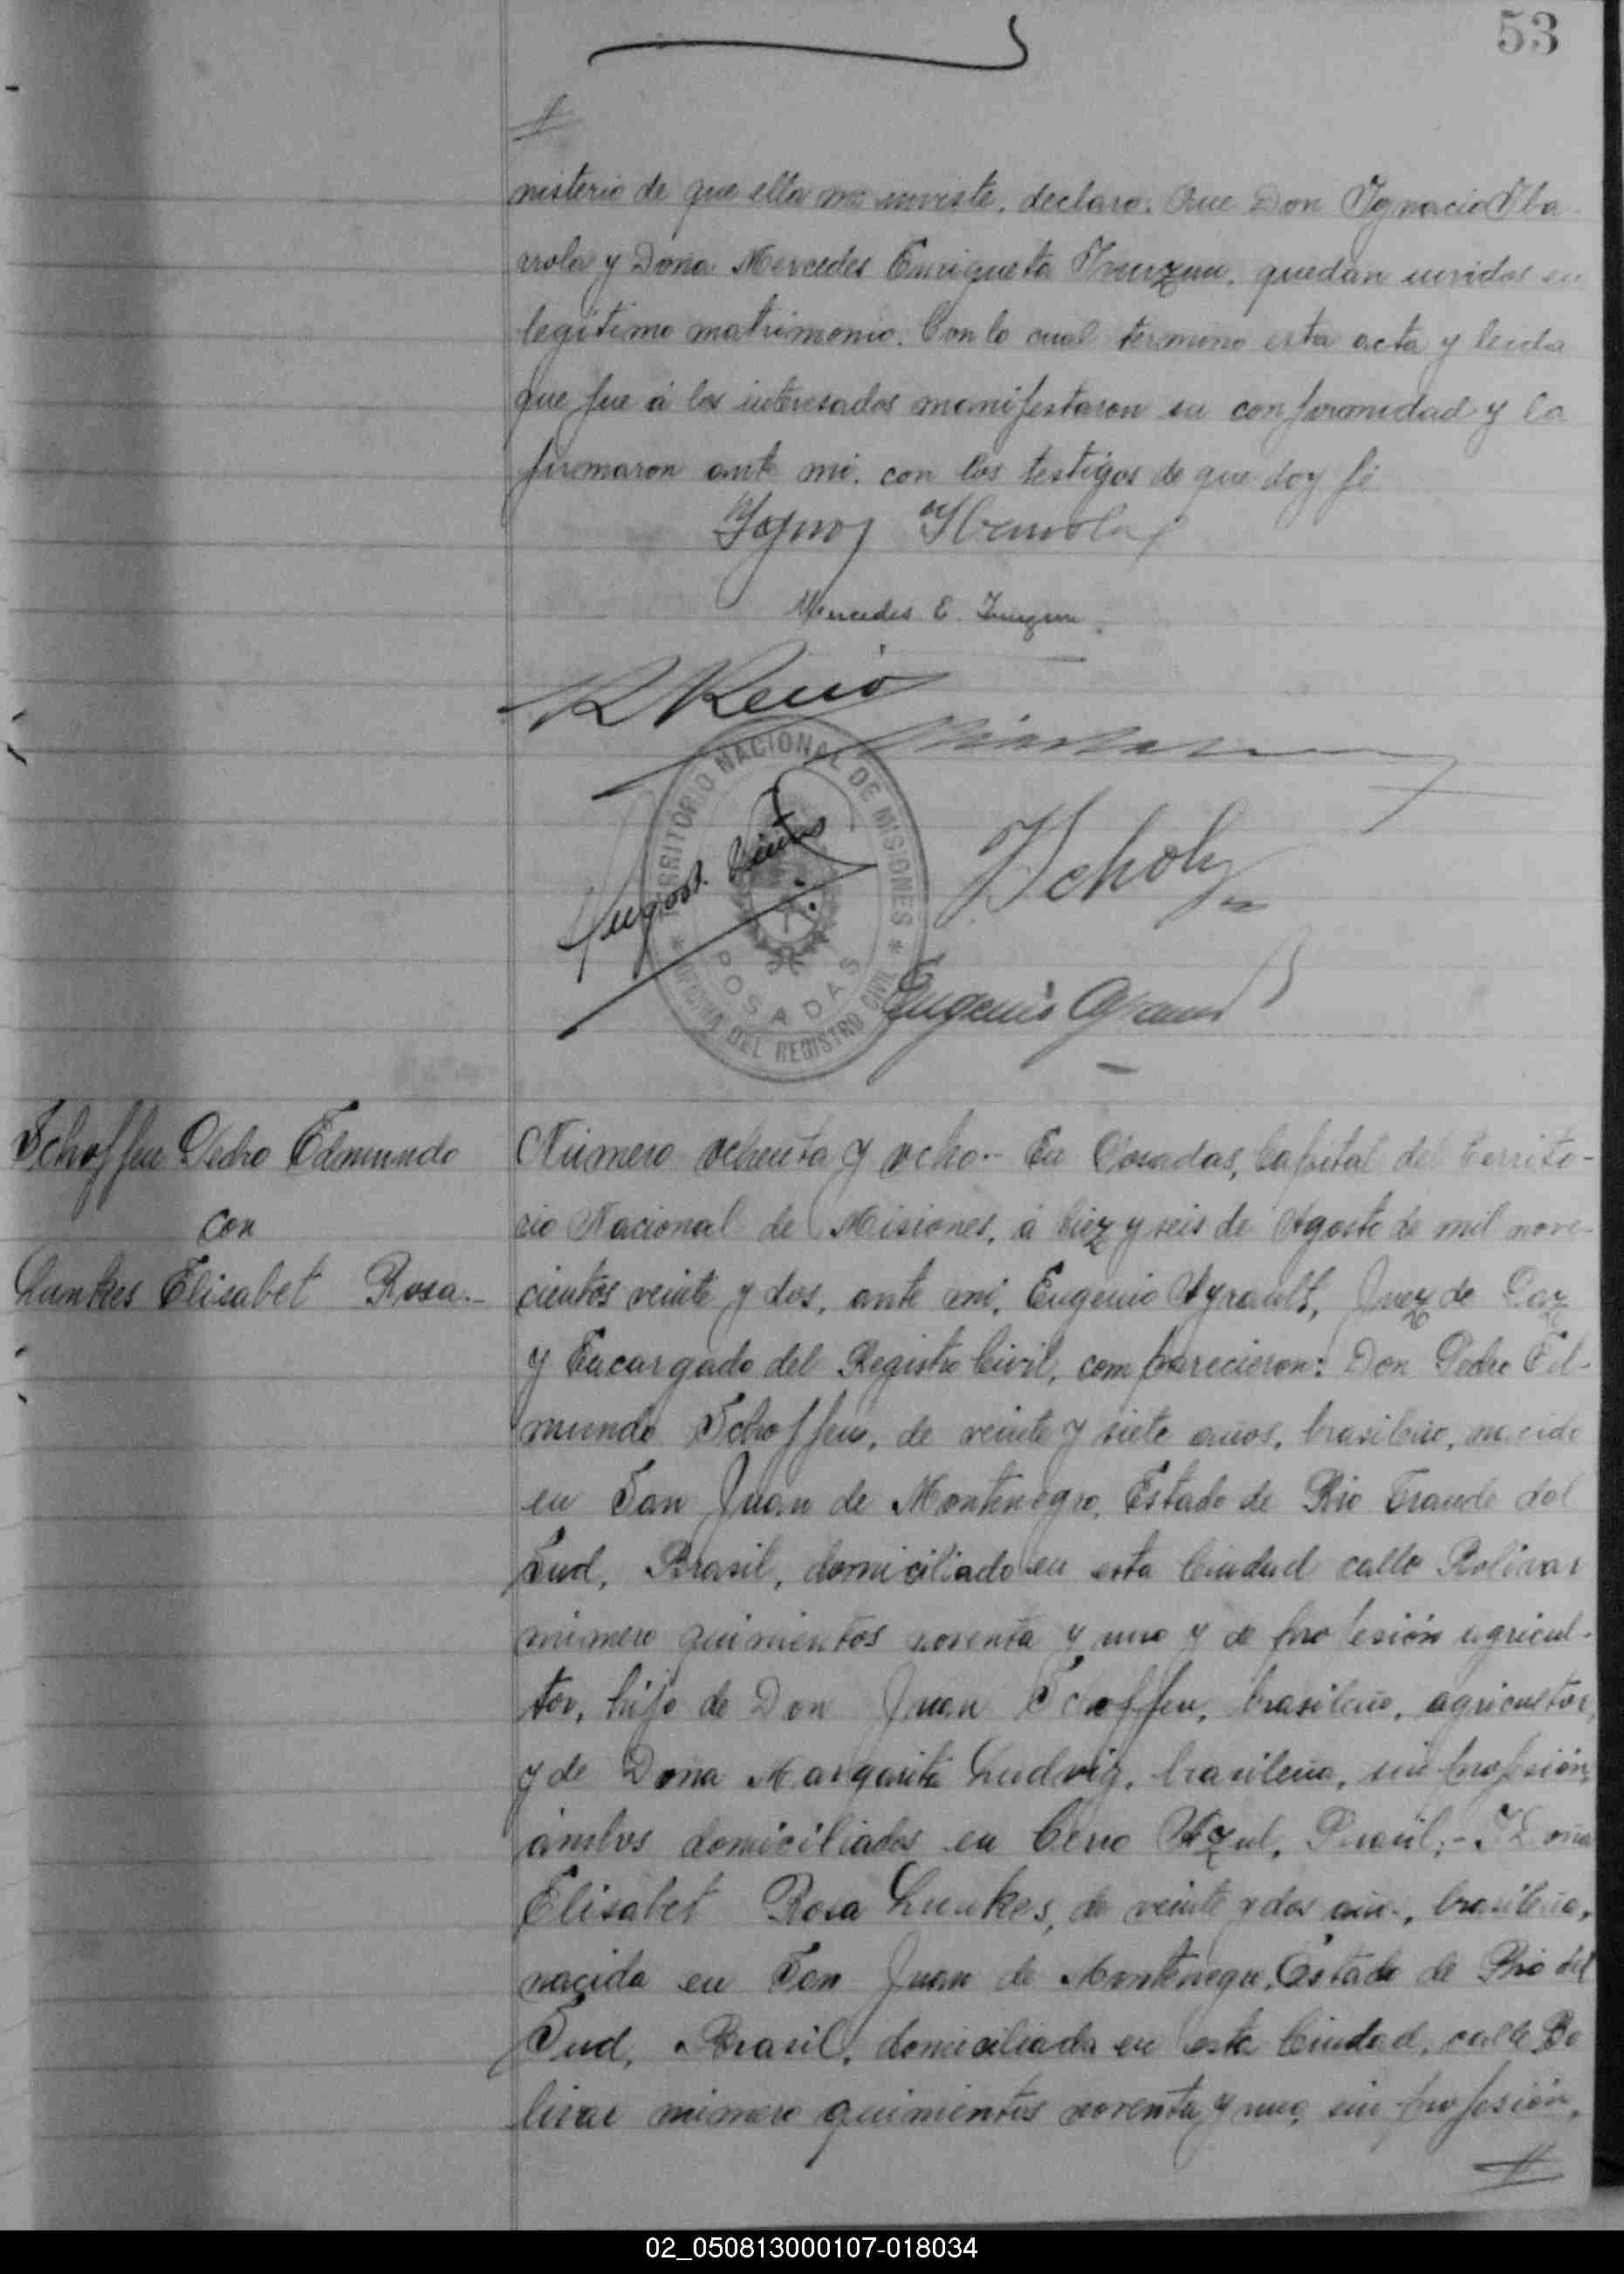 53
nisterio de que ella me inviste, declaro: Que Don Ygnacio Yba-
rrola y Doña Mercedes Enriqueta Yrurzun, quedan unidos en
legitimo matrimonio. Con lo cual termino esta acta y leida
que fue á los interesados manifestaron su conformidad y la
firmaron ante mi, con los testigos de que doy fé
Ybarrola
Mercedes E.
TERRITORIO NACIONAL DE MISIONES
POSADAS
* OFICINA DEL REGISTRO CIVIL *
Eugenio
Schoffen Pedro Edmundo
con
Lunkes Elisabet Rosa.-
Número ochenta y ocho.- En Posadas, Capital del Territo-
rio Nacional de Misiones, á diez y seis de Agosto de mil nove-
cientos veinte y dos, ante mi, Eugenio Ayrault, Juez de Paz
y Encargado del Registro Civil, comparecieron: Don Pedro Ed-
mundo Schoffen, de veinte y siete años, brasileño, nacido
en San Juan de Montenegro, Estado de Rio Grande del
Sud, Brasil, domiciliado en esta Ciudad calle Bolivar
número quinientos noventa y uno y de profesión agricul-
tor, hijo de Don Juan Schoffen, brasileño, agricultor,
y de Doña Margarita Ludwig, brasileña, sin profesión,
ámbos domiciliados en Cerro Azul, Brasil;- Y Doña
Elisabet Rosa Lunkes, de veinte y dos años, brasileña,
nacida en San Juan de Montenegro, Estado de Rio del
Sud, Brasil, domiciliada en esta Ciudad, calle Bo
livar número quinientos noventa y uno, sin profesión,
02_050813000107-018034